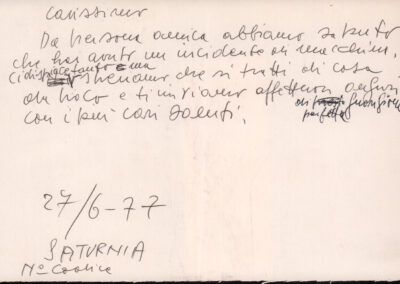 carissimo
Da persona amica abbiamo saputo
che hai avuto un incidente di macchina.
ci dispiace tanto e ma
speriamo che si tratti di cosa
da poco e ti inviamo affettuosi auguri
di perfetta guarigione
con i più cari saluti.
27/6-77
SATURNIA